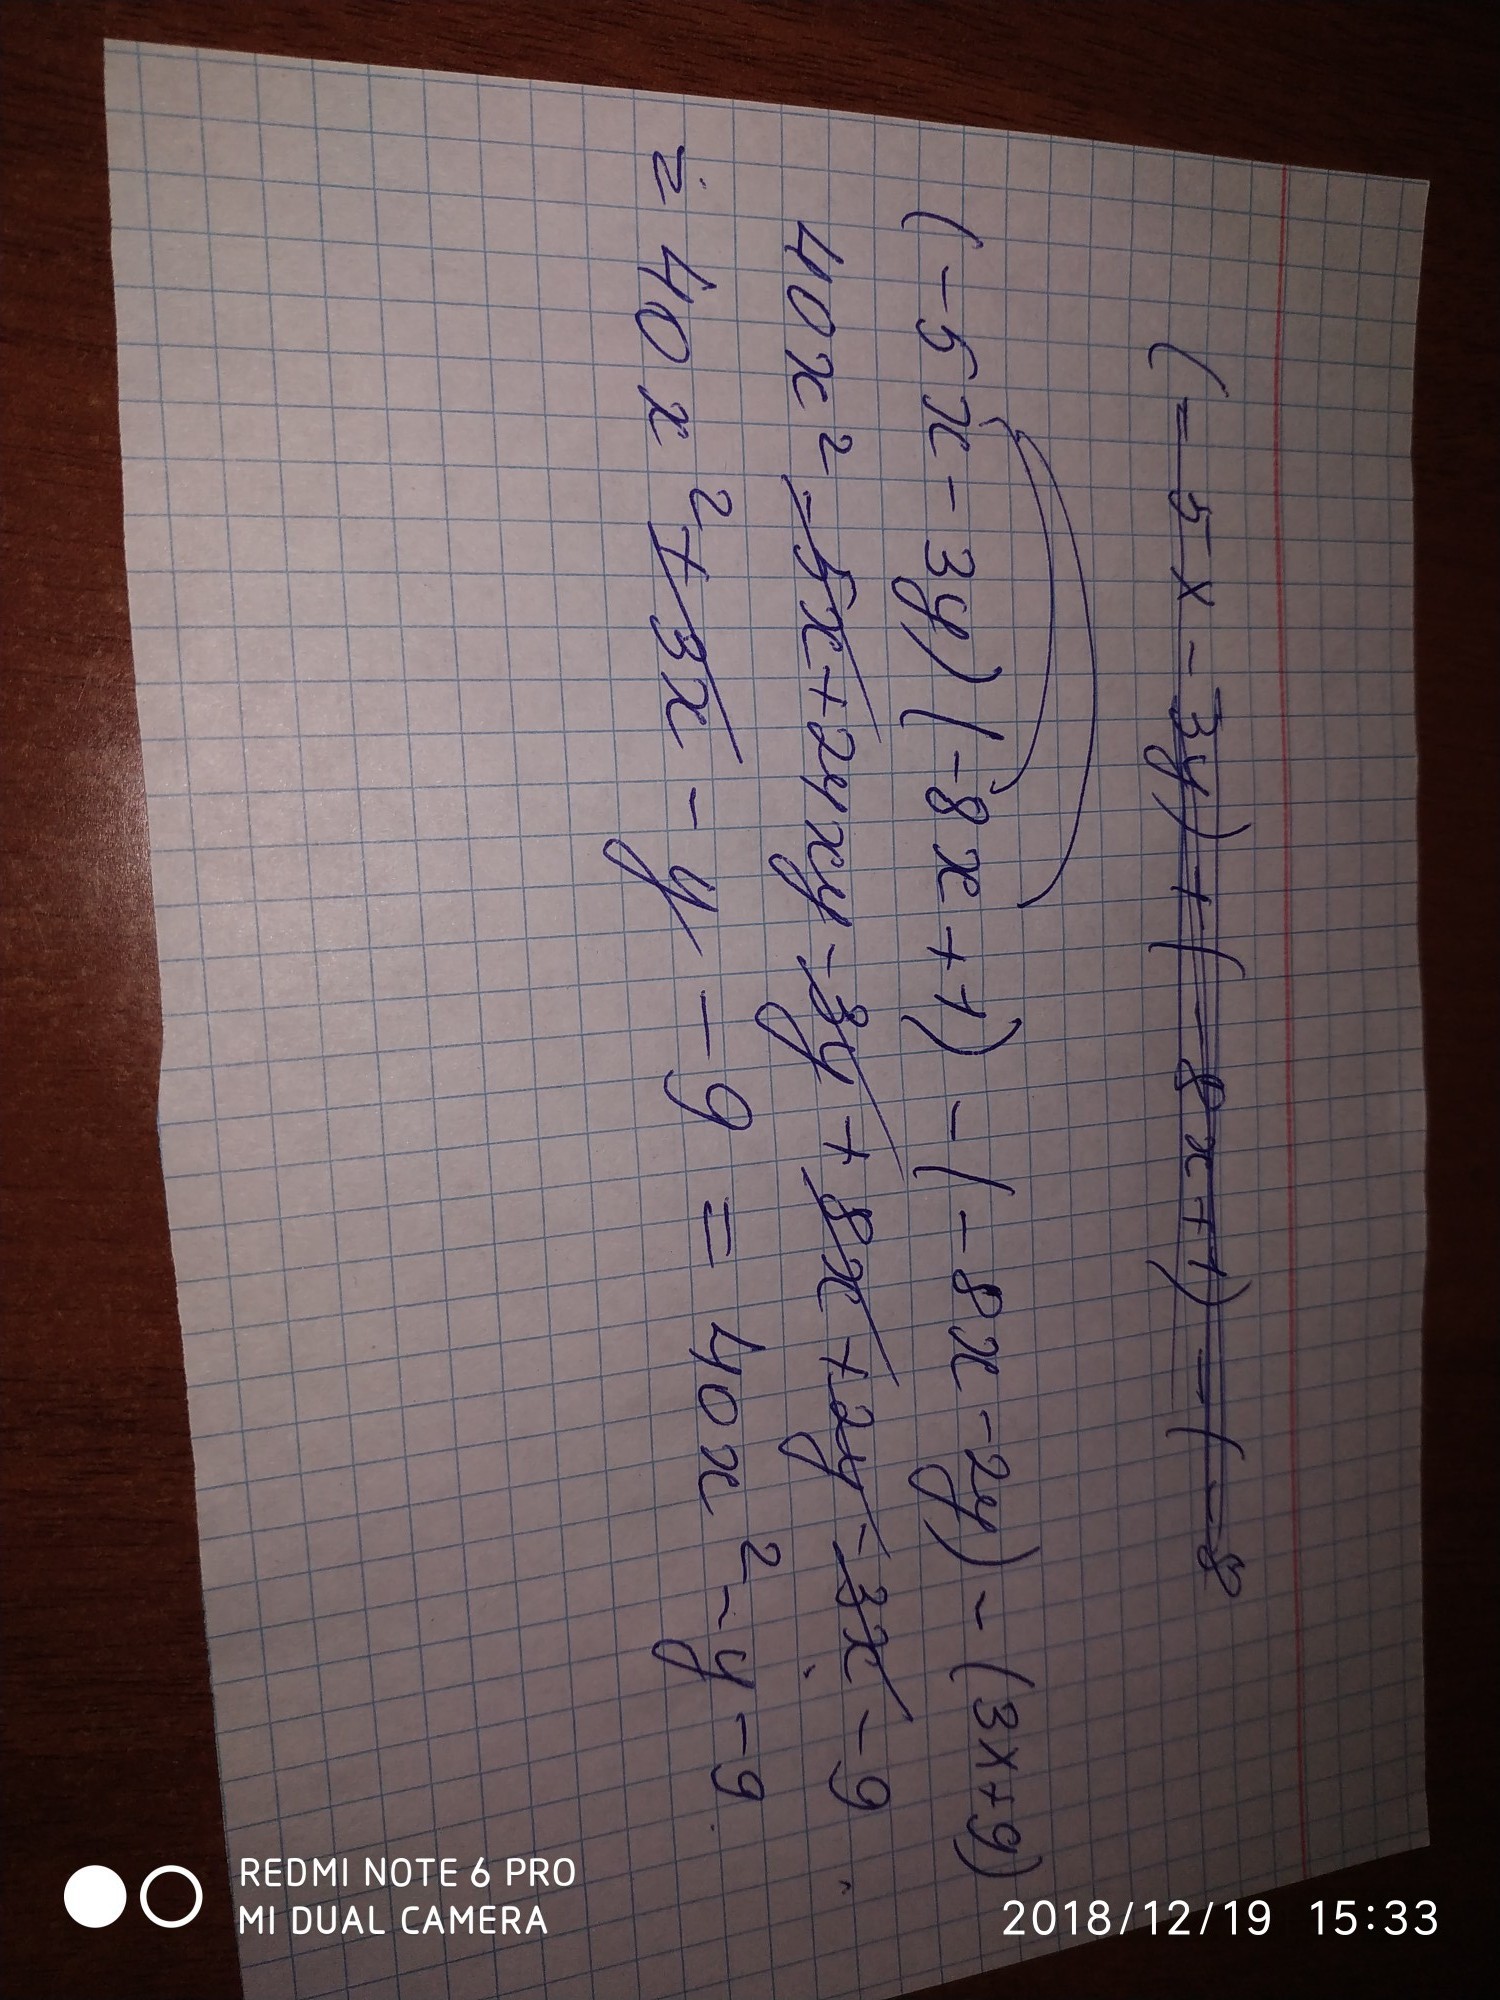 (-5x-3y)+(-8x+1)-(-8
(-5x-3y)(-8x+1)-(-8x-2y)-(3x+9)
40x²-5x+24xy-3y+8x+2y-3x-9
=40x²+3x-y-9=40x²-y-9
REDMI NOTE 6 PRO
MI DUAL CAMERA
2018/12/19 15:33